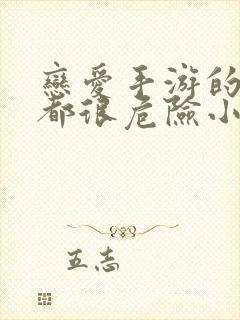 戀愛手游的
都很危險小
五志